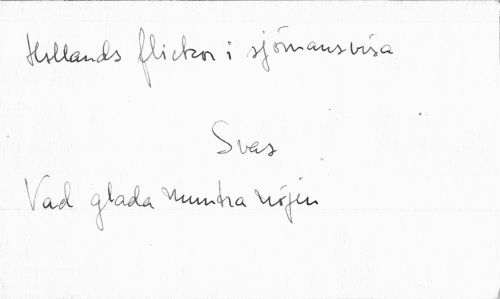 Hollands flickor i sjömansvisa
Svar
Vad glada muntra nöjen